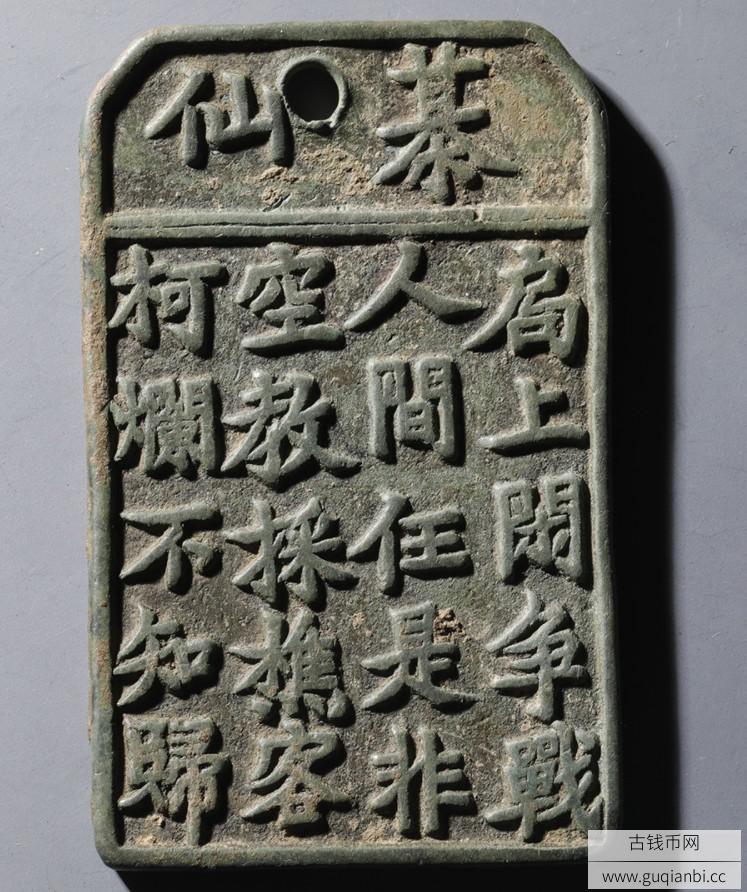 棊仙
局上閑争戰
人間任是非
空教採樵客
柯爛不知歸
古钱币网
www.guqianbi.cc